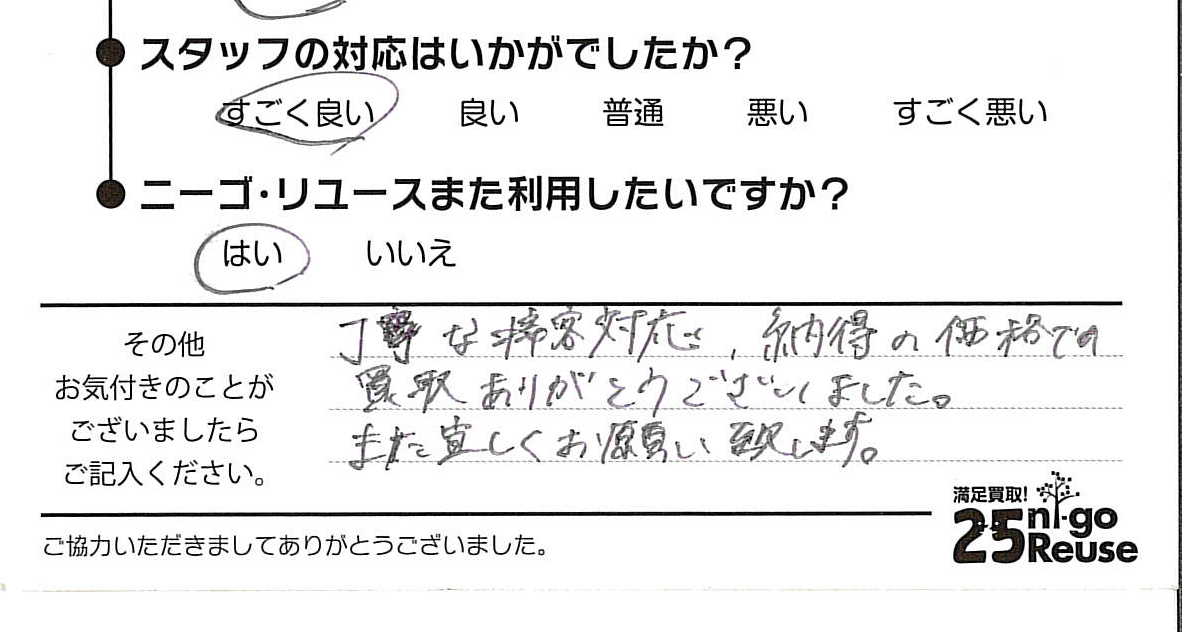 スタッフの対応はいかがでしたか?
すごく良い 良い 普通 悪い すごく悪い
ニーゴ・リユースまた利用したいですか?
はい いいえ
その他
お気付きのことが
ございましたら
ご記入ください。
丁寧な接客対応と、納得の価格での
買取ありがとうございました。
また宜しくお願い致します。
満足買取!
25 ni-go
Reuse
ご協力いただきましてありがとうございました。